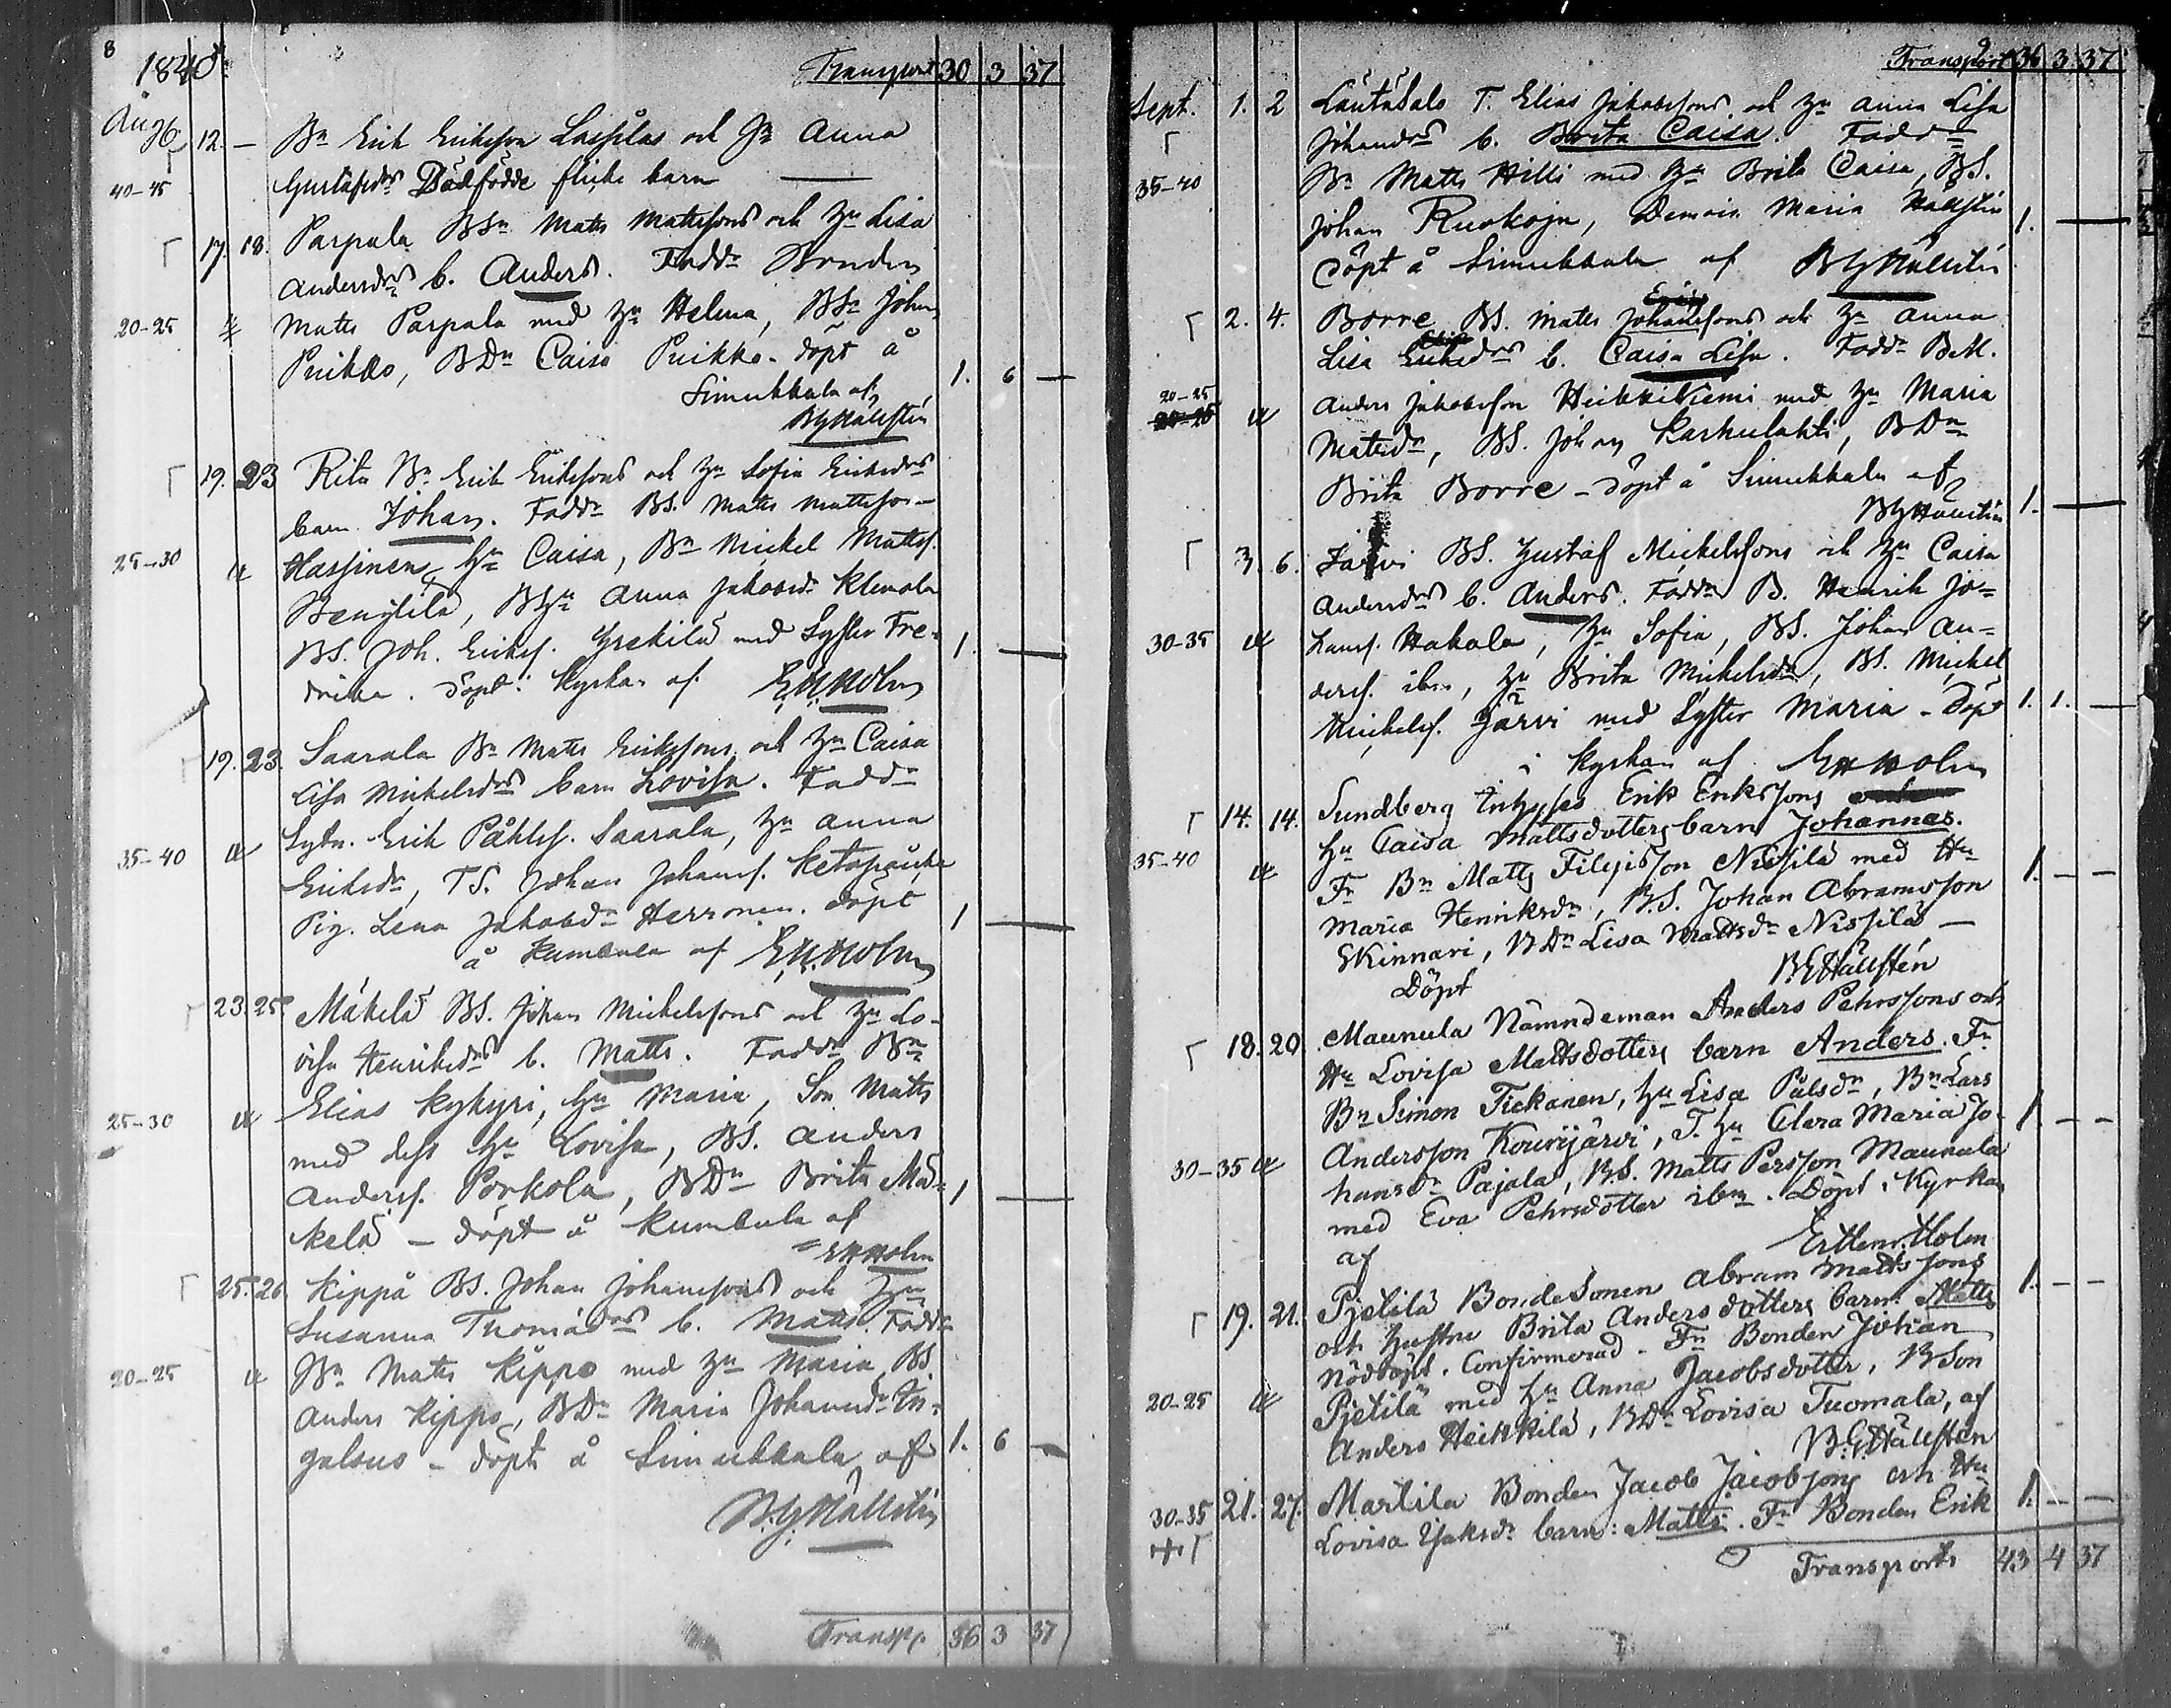 8
1840.
Transport 30 3 37
Aug.
12. — Bn Erik Eriksson Lassilas och Hu Anna
40-45 Gustafsdrs Dödfödde flicke barn —
17. 18. Parpala BSn Matts Mattssons och Hu Lisa
Andersdrs b. Anders. Faddr Bonden
20-25 Matts Parpala med Hu Helena, BSn Johan
Puikko, BDn Caisa Puikko. döpt å
Simukkala af 1. 6 —
BGHällsten
19. 23 Rita Bn Erik Erikssons och Hu Sofia Eriksdrs
barn Johan. Faddr BS. Matts Mattsson
25-30 Hassinen, Hu Caisa, Bn Mickel Mattss.
, Anna Jakobsdr Klemola
BS. Joh. Erikss. Yrskilä med Syster Fre-
drika. döpt i Kyrkan af EHHolm 1. —
19. 23. Saarala Bn Matts Erikssons och Hu Caisa
Lisa Mickelsdrs barn Lovisa. Faddr
35-40 Lytn. Erik Påhlss. Saarala, Hu Anna
Eriksdr, TS. Johan Johanss.
Pig. Lena Jakobsdr Herronen. döpt 1 —
å Kumbula af EHHolm
23. 25 Mäkelä BS. Johan Mickelssons och Hu Lo-
visa Henriksdrs b. Matts. Faddr Bn
25-30 Elias Kykyri, Hu Maria, Son Matts
med dess Hu Lovisa, BS. Anders
Anderss. Porkola, BDn Brita Mä- 1 —
kelä – döpt å Kumbula af
EHHolm
25. 26. Kippå BS. Johan Johanssons och Hu
Susanna Thomasdrs b. Matts. Faddr
20-25 Bn Matts Kippo med Hu Maria, BS
Anders Kippo, BDn Maria Johansdr In-
galsuo – döpt å Simukkala af 1. 6 —
B.G.Hällsten
Transp. 36 3 37
9
Transport 36 3. 37
Sept. 1. 2 Lautasalo T. Elias Jakobssons och Hu Anna Lisa
Johansdrs b. Brita Caisa. Faddr
35-40 Bn Matts Hilli med Hu Brita Caisa, BS.
Johan Ruokoja, Demois. Maria Hällsten 1. —
döpt å Simukkala af BGHällsten
2. 4. Borre BS. Matts Johanssons och Hu Anna
Lisa Eriksdrs b. Caisa Lisa. Faddr B.M.
20-25
20-25 Anders Jakobsson Heikkiniemi med Hu Maria
Matsdr, BS. Johan Karhulahti, BDn
Brita Borre – döpt å Simukkala af
BGHällsten 1. —
3. 6. Jarvi BS. Gustaf Mickelssons och Hu Caisa
Andersdrs b. Anders. Faddr B. Henrik Jo-
30-35 hanss. Hakala, Hu Sofia, BS. Johan An-
derss. ibm, Hu Brita Mickelsdr, BS. Mickel
Mickelss. Järvi med Syster Maria – döpt 1. 1. —
i Kyrkan af EHHolm
14. 14. Sundberg Inhyses Erik Erikssons
Hu Caisa Mattsdotters barn Johannes.
35-40 Fr Bn Matts Filipsson Nissilä med Hu 1. — —
Maria Henriksdr, B.S. Johan Abramsson
Skinnari, BDn Lisa Mattsdr Nissilä —
Döpt B.G.Hällstén
18. 20. Maunula Nämndeman Anders Pehrssons och
Hu Lovisa Mattsdotters barn Anders. Fr
Bn Simon Tiekanen, Hu Lisa Pålsdr, Bn Lars 1. — —
30-35 Andersson Kourijärvi, T. Hu Clara Maria Jo-
hansdr Pajala, B.S. Matts Persson Maunula
med Eva Pehrsdotter ibm. Döpt i Kyrkan
af Er.Henr.Holm
19. 21. Pjetilä BondeSonen Abram Mattssons 1. — —
och Hustru Brita Andersdotters barn: Matts
Nöddöpt. Confirmerad. Fr Bonden Johan
20-25 Pjetilä med Hu Anna Jacobsdotter, BSon
Anders Heikkilä, BDr Lovisa Tuomala, af
B.G.Hällsten
30-35 21. 27. Martila Bonden Jacob Jacobssons och Hu 1. — —
Lovisa Isaksdr barn: Matts. Fr Bonden Erik
Transport 43 4 37